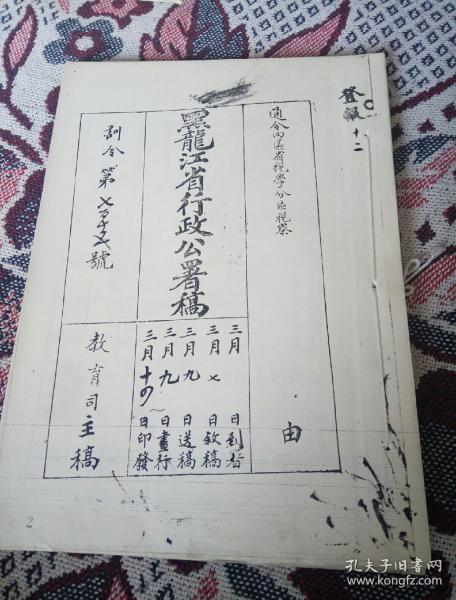 登報 十二
通令四區省視學分區視察
由
黑龍江省行政公署稿
三月 日到署
三月七日敘稿
三月九日送稿
三月九日畫行
三月十四日印發
訓令 第 號
教育司主稿
2
孔夫子旧书网
www.kongfz.com